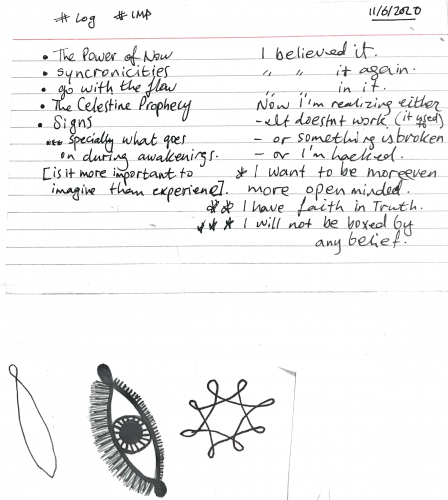 # Log # IMP 11/6/2020
• The Power of Now I believed it.
• syncronicities " " it again.
• go with the flow " " in it.
• The Celestine Prophecy Now I'm realizing either
• Signs - It doesnt work (it used)
*** specially what goes - or something is broken
on during awakenings. - or I'm hacked.
[is it more important to * I want to be more even
imagine than experience]. more open minded.
** I have faith in Truth.
*** I will not be boxed by
any belief.